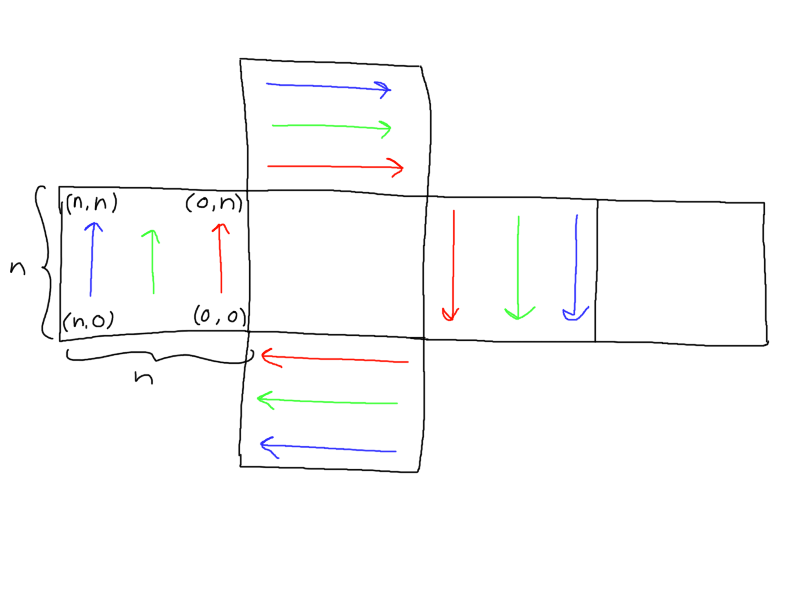 (n,n) (0,n)
n
(n,0) (0,0)
n